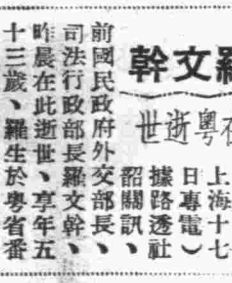 羅文幹
在粵逝世
上海十七
日專電）
據路透社
韶關訊、
前國民政府外交部長、
司法行政部長羅文幹、
昨晨在此逝世、享年五
十三歲、羅生於粵省番